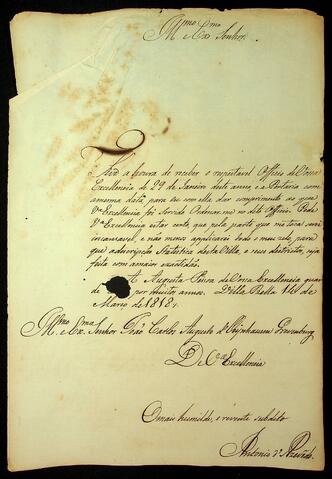 Illmo e Exmo Senhor.
Tive a honra de receber o respeitavel Officio de Vossa
Excellencia de 29 de Janeiro deste anno, e a Portaria com
amesma data para eu com ella dar comprimento ao que
Va Excellencia foi Servido Ordenar-me no dito Officio. Pode
Va Excellencia estar certo, que pela parte que me toca serei
incansavel, e não menos applicarei todo o meu zelo, para
que adescripção Statistica desta Villa, e seus destrictos, seja
feita com amaior exactidão.
A Augusta Pessoa de Vossa Excellencia guar
de por muitos annos. Villa Bella de
Março de 1818.
Illmo e Exmo Senhor João Carlos Augusto d'Oeynhausen Grevenburg
De Va Excellencia
O mais humilde, e reverente subdito
Antonio